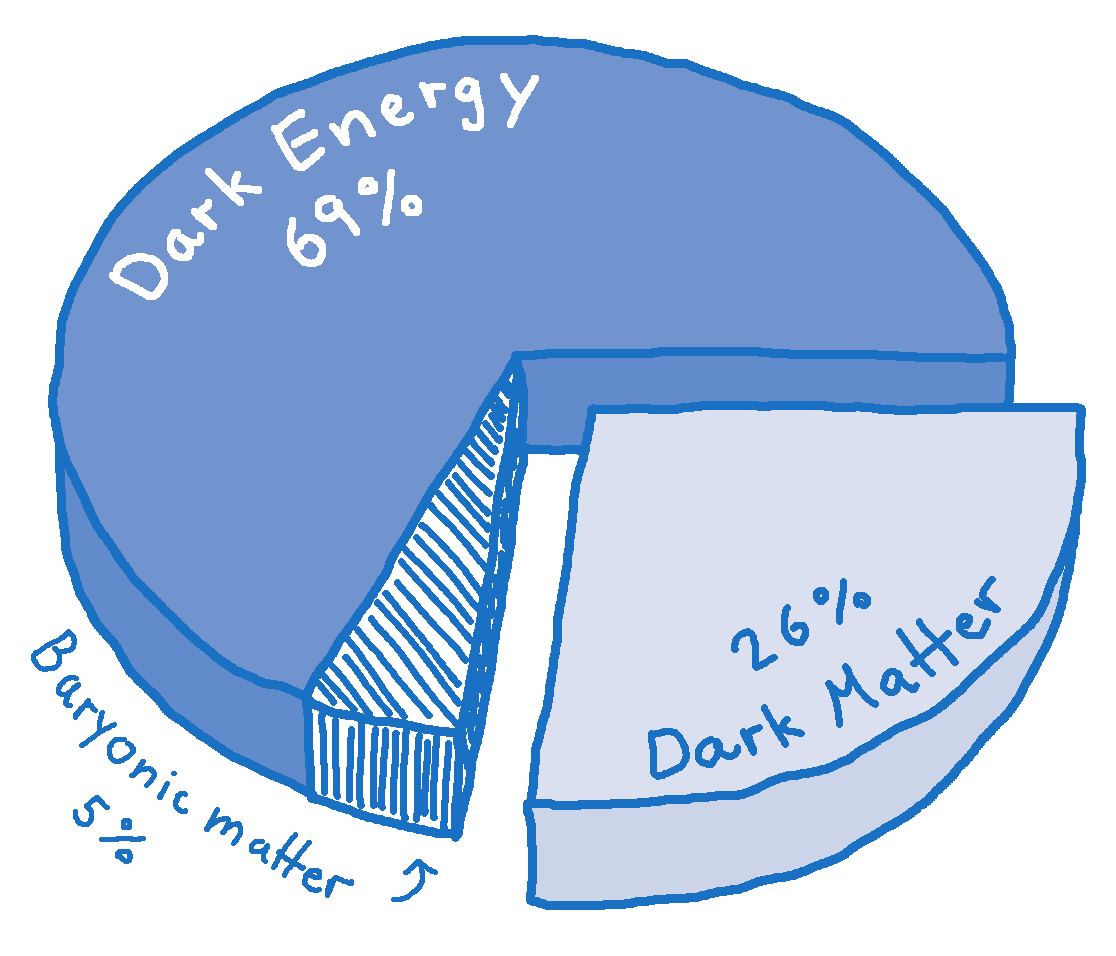 Dark Energy
69%
26%
Dark Matter
Baryonic matter
5%